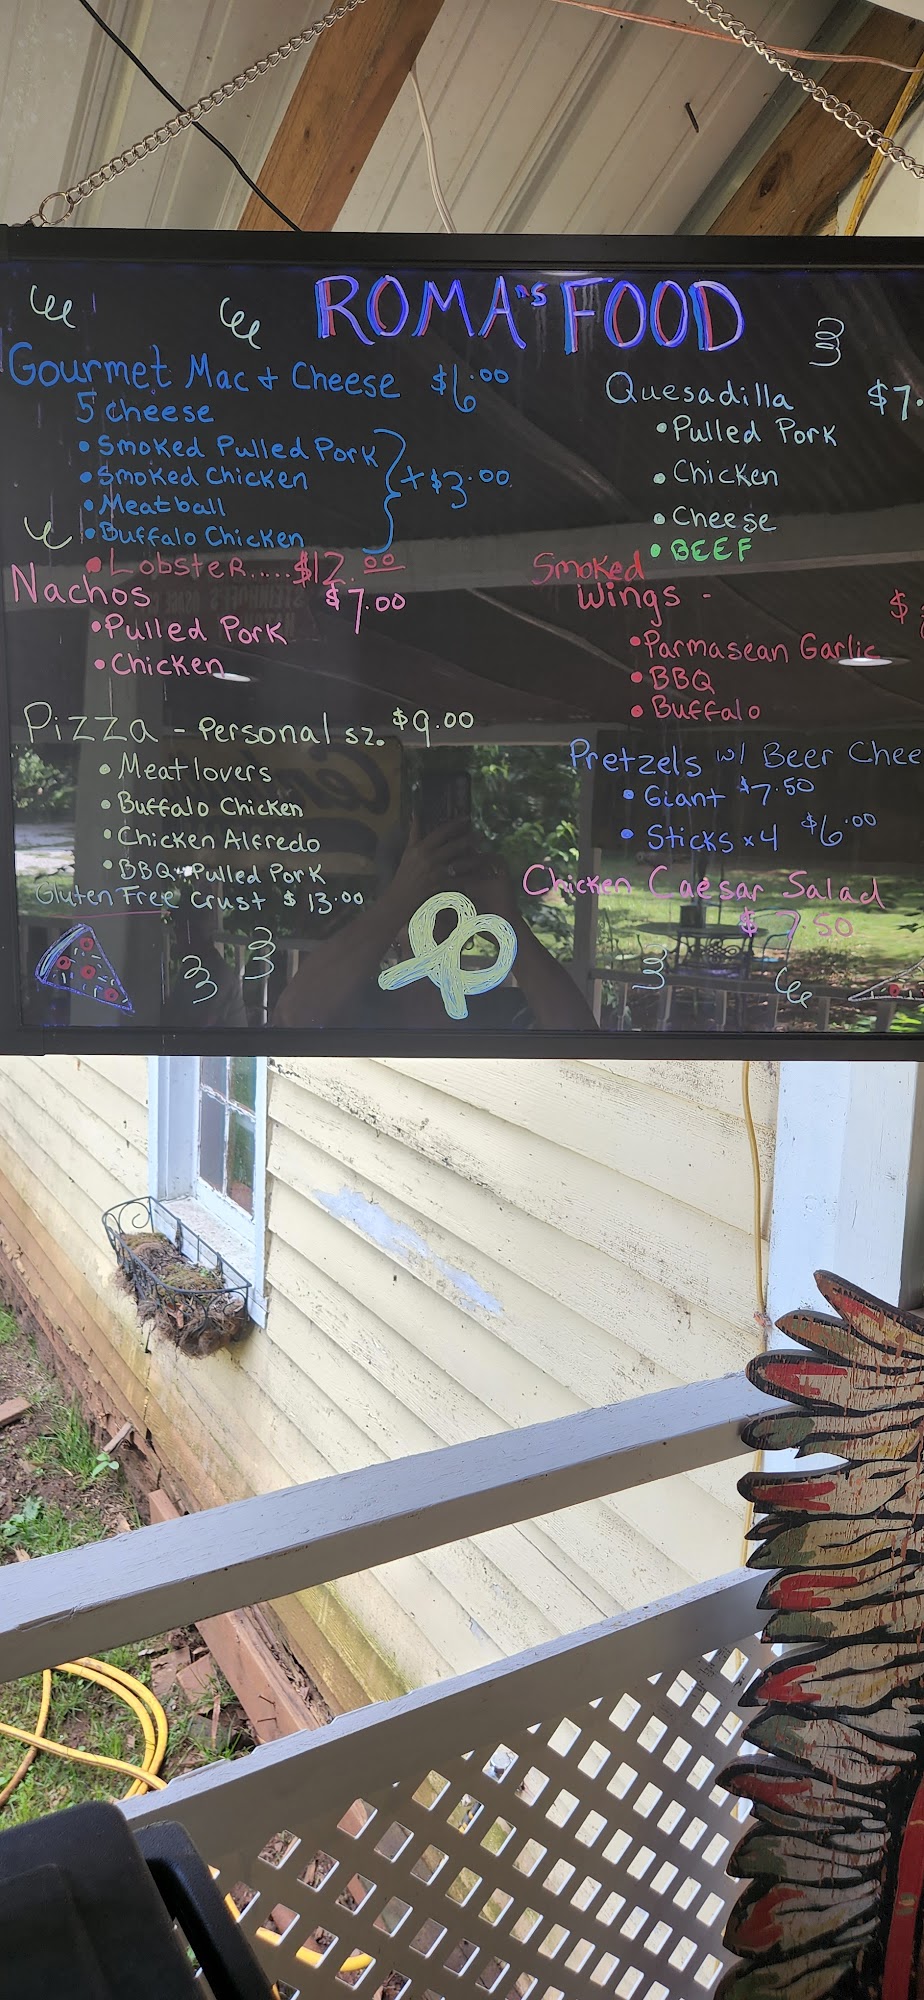 ROMA'S FOOD
Gourmet Mac + Cheese $6.00
5 Cheese
• Smoked Pulled Pork
• Smoked Chicken
• Meatball
• Buffalo Chicken
+ $3.00
• Lobster....$12.00
Nachos $7.00
• Pulled Pork
• Chicken
Pizza - Personal sz. $9.00
• Meatlovers
• Buffalo Chicken
• Chicken Alfredo
• BBQ Pulled Pork
Gluten Free Crust $13.00
Quesadilla $7.
• Pulled Pork
• Chicken
• Cheese
• BEEF
Smoked
Wings - $
• Parmasean Garlic
• BBQ
• Buffalo
Pretzels w/ Beer Chee
• Giant $7.50
• Sticks x4 $6.00
Chicken Caesar Salad
$7.50